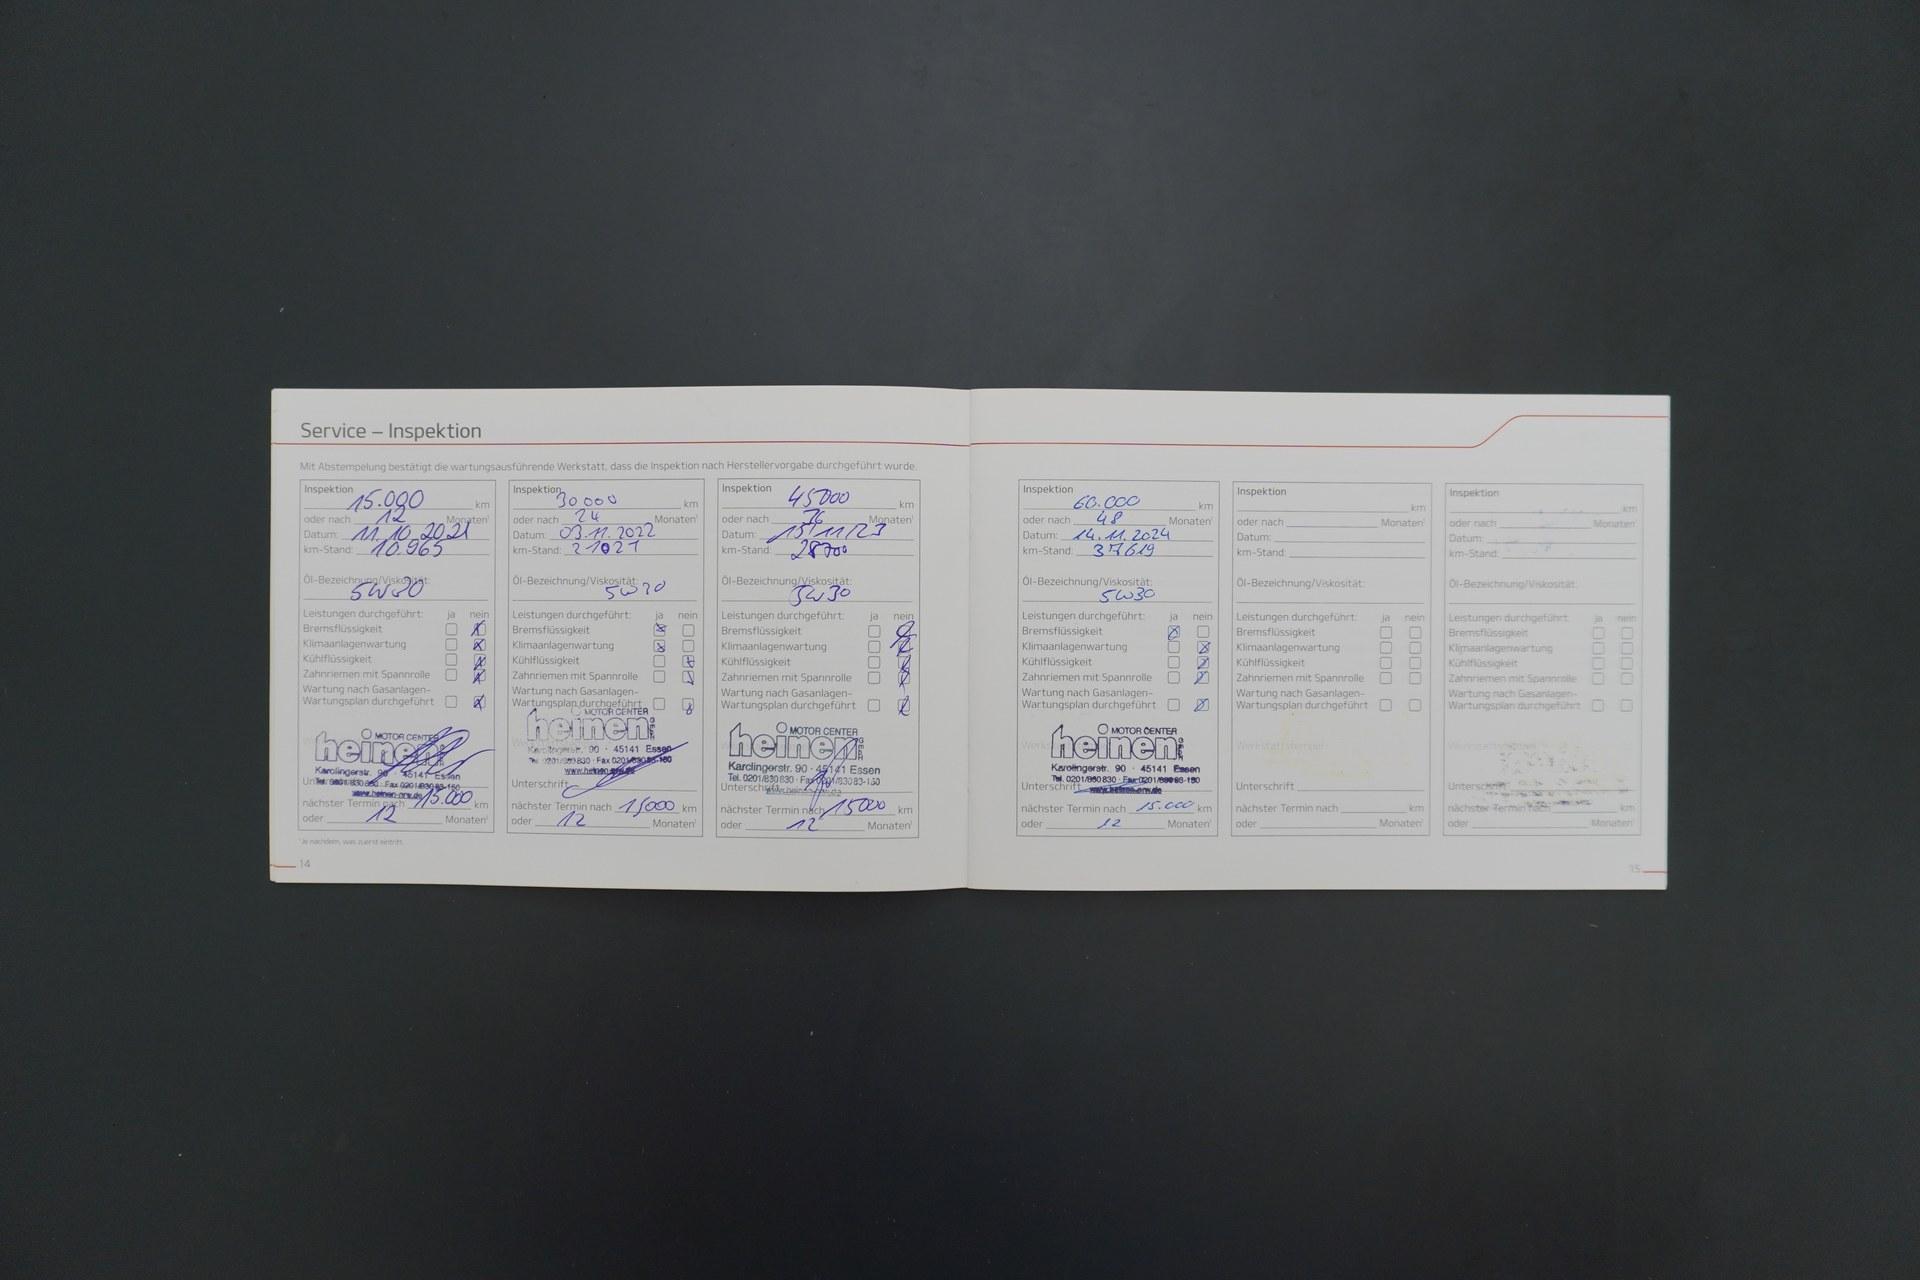 Service – Inspektion
Mit Abstempelung bestätigt die wartungsausführende Werkstatt, dass die Inspektion nach Herstellervorgabe durchgeführt wurde.
Inspektion
15.000 km
oder nach 12 Monaten¹
Datum: 11.10.2021
km-Stand: 10.965
Öl-Bezeichnung/Viskosität:
5W30
Leistungen durchgeführt: ja nein
Bremsflüssigkeit
Klimaanlagenwartung
Kühlflüssigkeit
Zahnriemen mit Spannrolle
Wartung nach Gasanlagen-
Wartungsplan durchgeführt
MOTOR CENTER
heinen
Karolingerstr. 90 · 45141 Essen
nächster Termin nach 15.000 km
oder 12 Monaten¹
Inspektion
30000 km
oder nach 24 Monaten¹
Datum: 03.11.2022
km-Stand: 21021
Öl-Bezeichnung/Viskosität:
5W30
Leistungen durchgeführt: ja nein
Bremsflüssigkeit
Klimaanlagenwartung
Kühlflüssigkeit
Zahnriemen mit Spannrolle
Wartung nach Gasanlagen-
Wartungsplan durchgeführt
MOTOR CENTER
heinen
Karolingerstr. 90 · 45141 Essen
Unterschrift
nächster Termin nach 15000 km
oder 12 Monaten¹
Inspektion
45000 km
oder nach 36 Monaten¹
Datum: 15/11/23
km-Stand: 28700
Öl-Bezeichnung/Viskosität:
5W30
Leistungen durchgeführt: ja nein
Bremsflüssigkeit
Klimaanlagenwartung
Kühlflüssigkeit
Zahnriemen mit Spannrolle
Wartung nach Gasanlagen-
Wartungsplan durchgeführt
MOTOR CENTER
heinen
Karolingerstr. 90 · 45141 Essen
Tel. 0201/830830 · Fax 0201/83083-150
Unterschrift
nächster Termin nach 15000 km
oder 12 Monaten¹
¹Je nachdem, was zuerst eintritt.
14
Inspektion
60.000 km
oder nach 48 Monaten¹
Datum: 14.11.2024
km-Stand: 37619
Öl-Bezeichnung/Viskosität:
5W30
Leistungen durchgeführt: ja nein
Bremsflüssigkeit
Klimaanlagenwartung
Kühlflüssigkeit
Zahnriemen mit Spannrolle
Wartung nach Gasanlagen-
Wartungsplan durchgeführt
MOTOR CENTER
heinen
Karolingerstr. 90 · 45141 Essen
Unterschrift
nächster Termin nach 15.000 km
oder 12 Monaten¹
Inspektion
km
oder nach Monaten¹
Datum:
km-Stand:
Öl-Bezeichnung/Viskosität:
Leistungen durchgeführt: ja nein
Bremsflüssigkeit
Klimaanlagenwartung
Kühlflüssigkeit
Zahnriemen mit Spannrolle
Wartung nach Gasanlagen-
Wartungsplan durchgeführt
Werkstattstempel
Unterschrift
nächster Termin nach km
oder Monaten¹
Inspektion
km
oder nach Monaten¹
Datum:
km-Stand:
Öl-Bezeichnung/Viskosität:
Leistungen durchgeführt: ja nein
Bremsflüssigkeit
Klimaanlagenwartung
Kühlflüssigkeit
Zahnriemen mit Spannrolle
Wartung nach Gasanlagen-
Wartungsplan durchgeführt
Unterschrift
nächster Termin nach km
oder Monaten¹
15